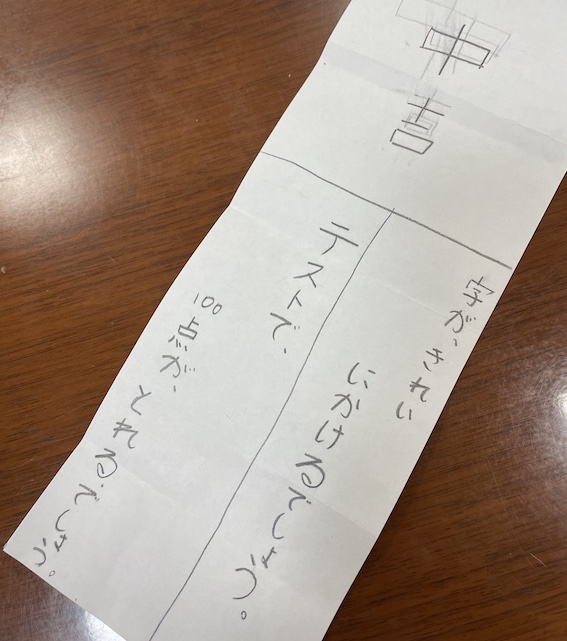 中吉
字が、きれい
にかけるでしょう。
テストで、
100点が、
とれるでしょう。